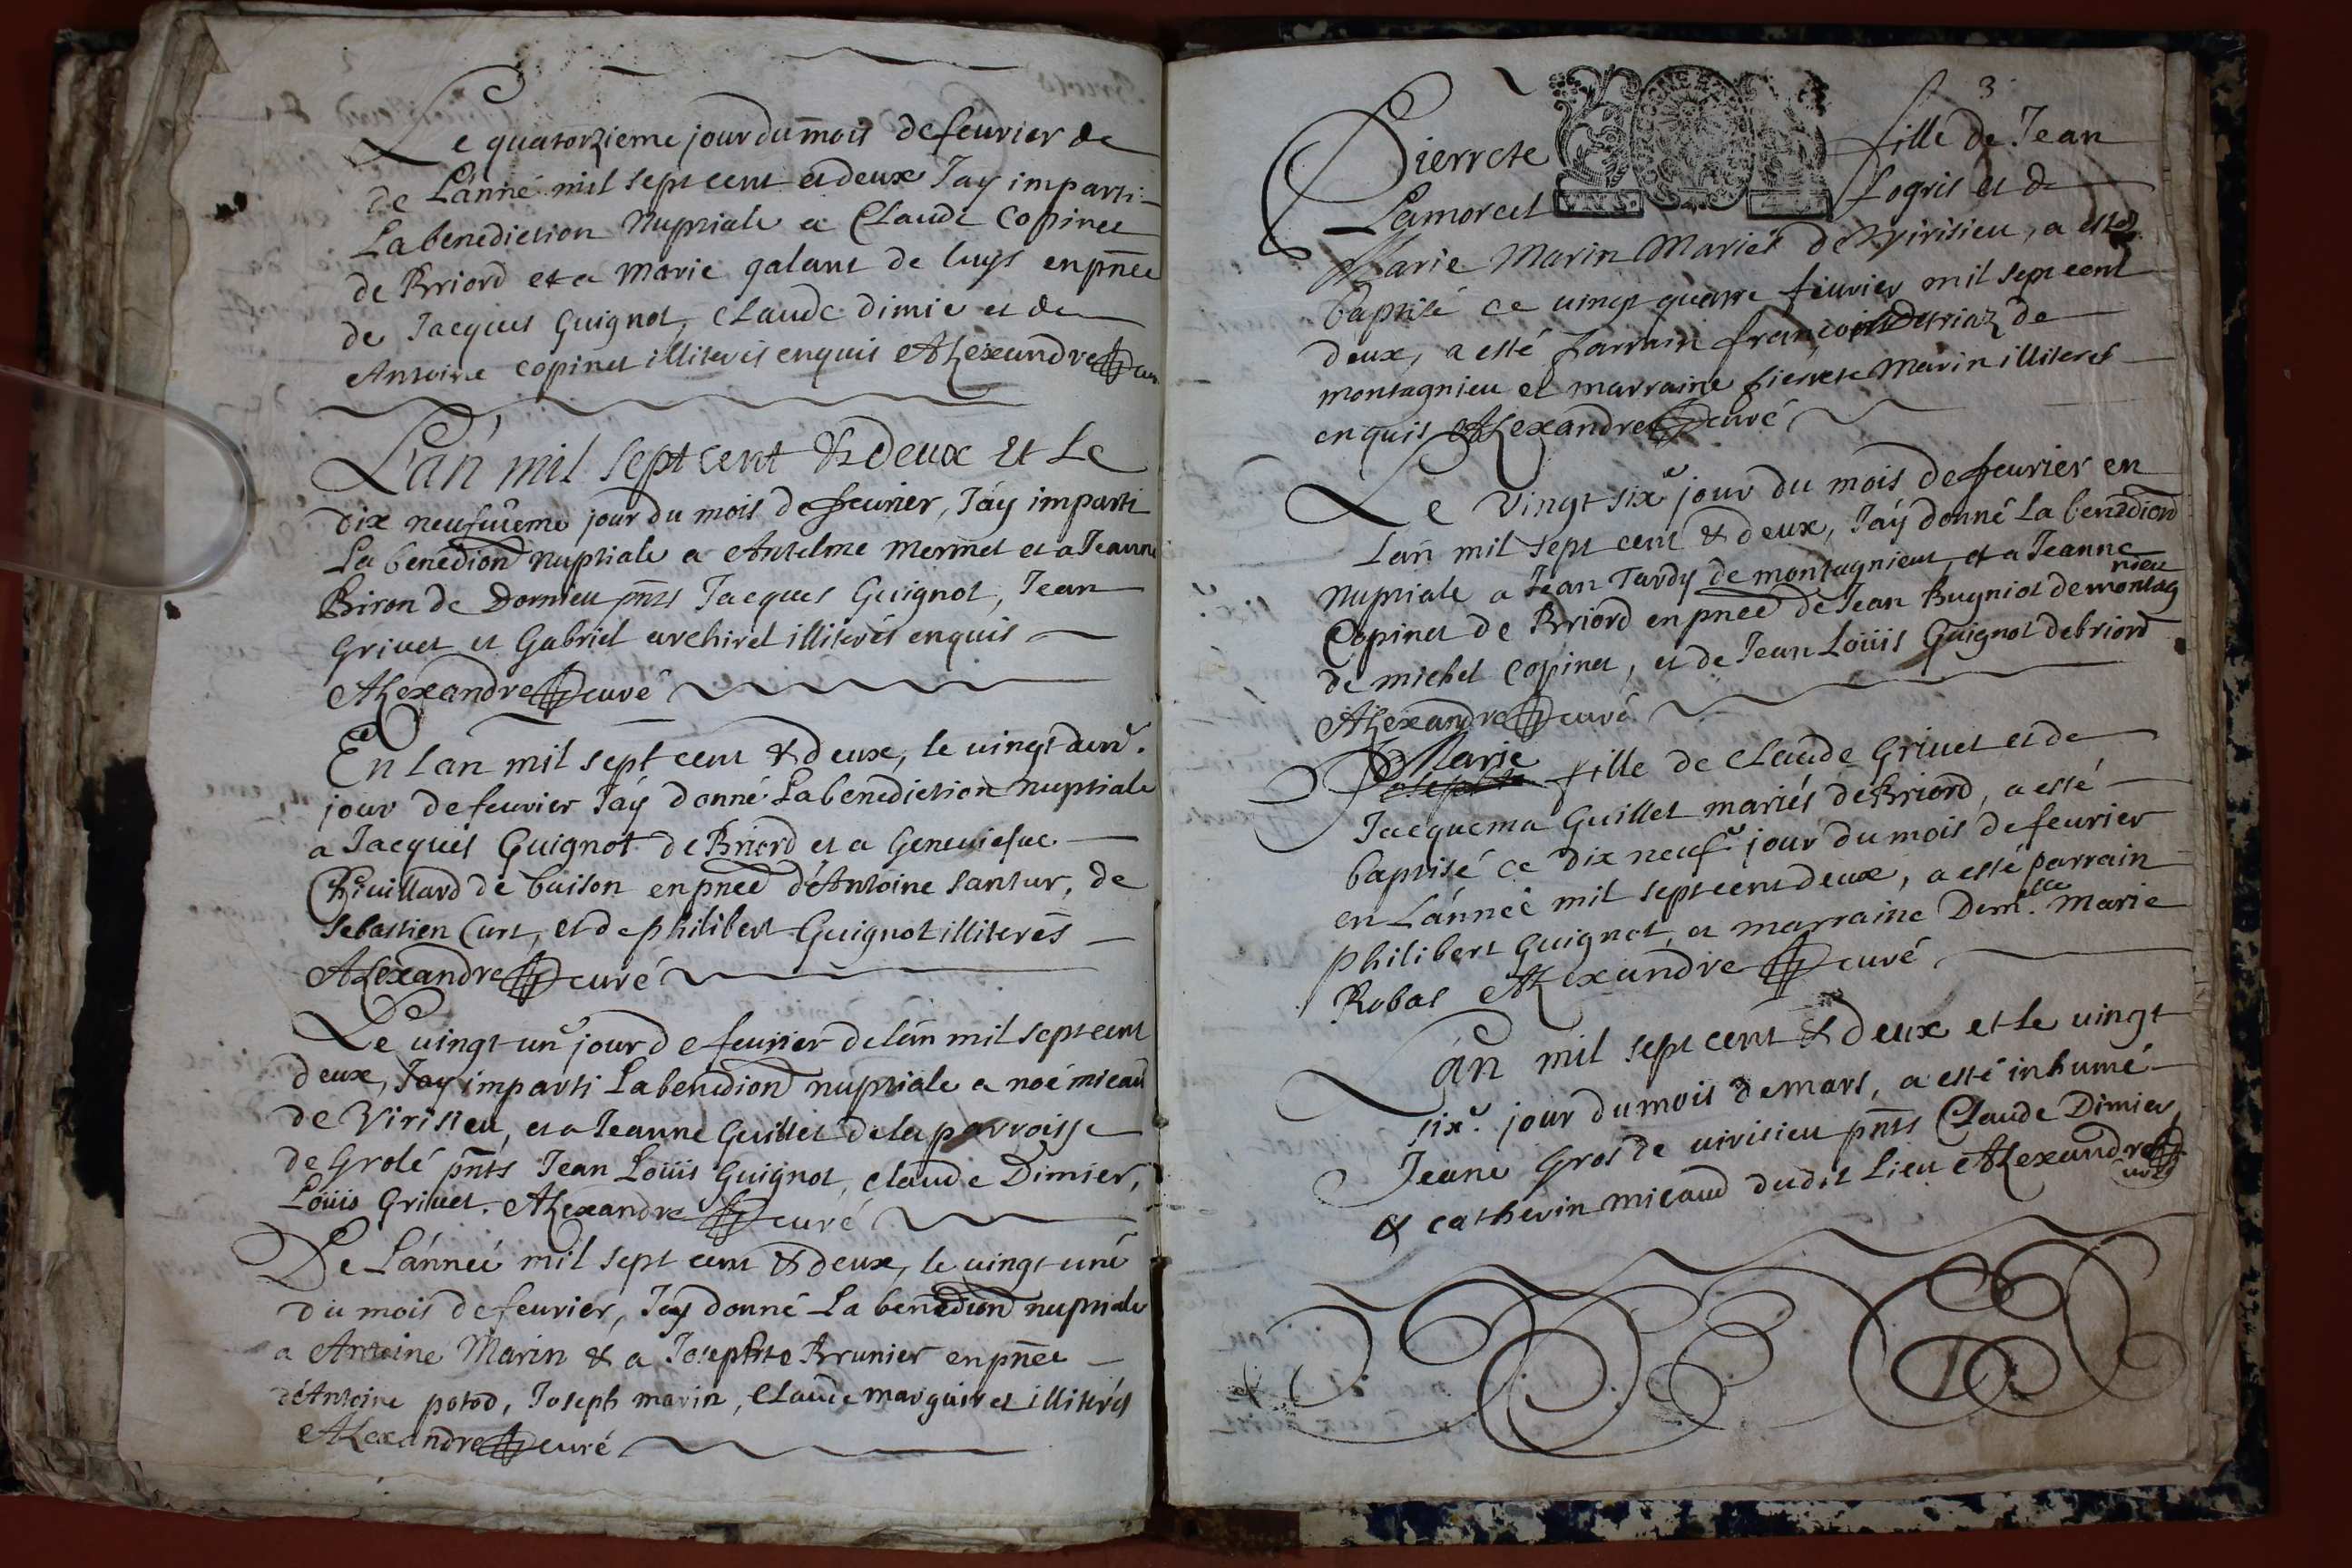 Le quatorzieme jour du mois de feurier de
de L'anné mil sept cent et deux Jay imparti
La benediction Nuptiale a Claude Copinet
de Briord et a Marie galant de luys en pnce
de Jacques Guignot, Claude dimie et de
Antoine Copinet illiterés enquis Alexandre cur
L'an mil sept cent & deux et Le
dix neufuieme jour du mois de feurier, J'ay imparti
La benedion nuptiale a Antelme mermet et a Jeanne
Biron de Dornieu pnts Jacques Guignot, Jean
Griuet et Gabriel archirel illiterés enquis
Alexandre curé
En lan mil sept cent & deux, le uingt
jour de feurier J'ay donné La benediction nuptiale
a Jacques Guignot de Briord et a Geneuiefue
de buison en pnce d'Antoine santur, de
Sebastien Curt, et de philibert Guignot illiterés
Alexandre curé
Le uingt un.e jour de feurier de lan mil sept cent
deux, Jay imparti La benedion nuptiale a noé micaud
de Virisieu, et a Jeanne Guillet de la parroisse
de Grolé pnts Jean Loüis Guignot, claude Dimier,
Loüis Griuet. Alexandre curé
De L'année mil sept cent & deux, le uingt une
du mois de feurier, J'ay donné La benedion nuptiale
a Antoine Marin & a Josephte Brunier en pnce
d'Antoine potod, Joseph marin, Claude marguiret illiterés
Alexandre curé
3
Pierrete fille de Jean
Lamorcel Logris et de
Marie Marin Mariés de Virisieu, a esté
baptisé ce uingt quatre feurier mil sept cent
deux, a esté parrain francois de
montagnieu et marraine pierrete Marin illiteres
enquis Alexandre curé
Le Vingt six.e jour du mois de feurier en
Lan mil sept cent & deux, J'ay donné La benedion
Nuptiale a Jean Tardy de montagnieu, et a Jeanne
Copinet de Briord en pnce de Jean Bugniot de montagnieu
de michel Copinet, et de Jean Loüis Guignot de briord
Alexandre curé
Marie fille de Claude Griuet et de
Jacquema Guillet mariés de Briord, a esté
baptisé ce dix neuf.e jour du mois de feurier
en L'année mil sept cent deux, a esté parrain
philibert Guignot, et marraine Dem.elle Marie
Robat Alexandre curé
L'an mil sept cent & deux et le uingt
six.e jour du mois de mars, a esté inhumé
Jeane Gros de uirisieu pnts Claude Dimier,
& catherin micaud dudit Lieu Alexandre curé